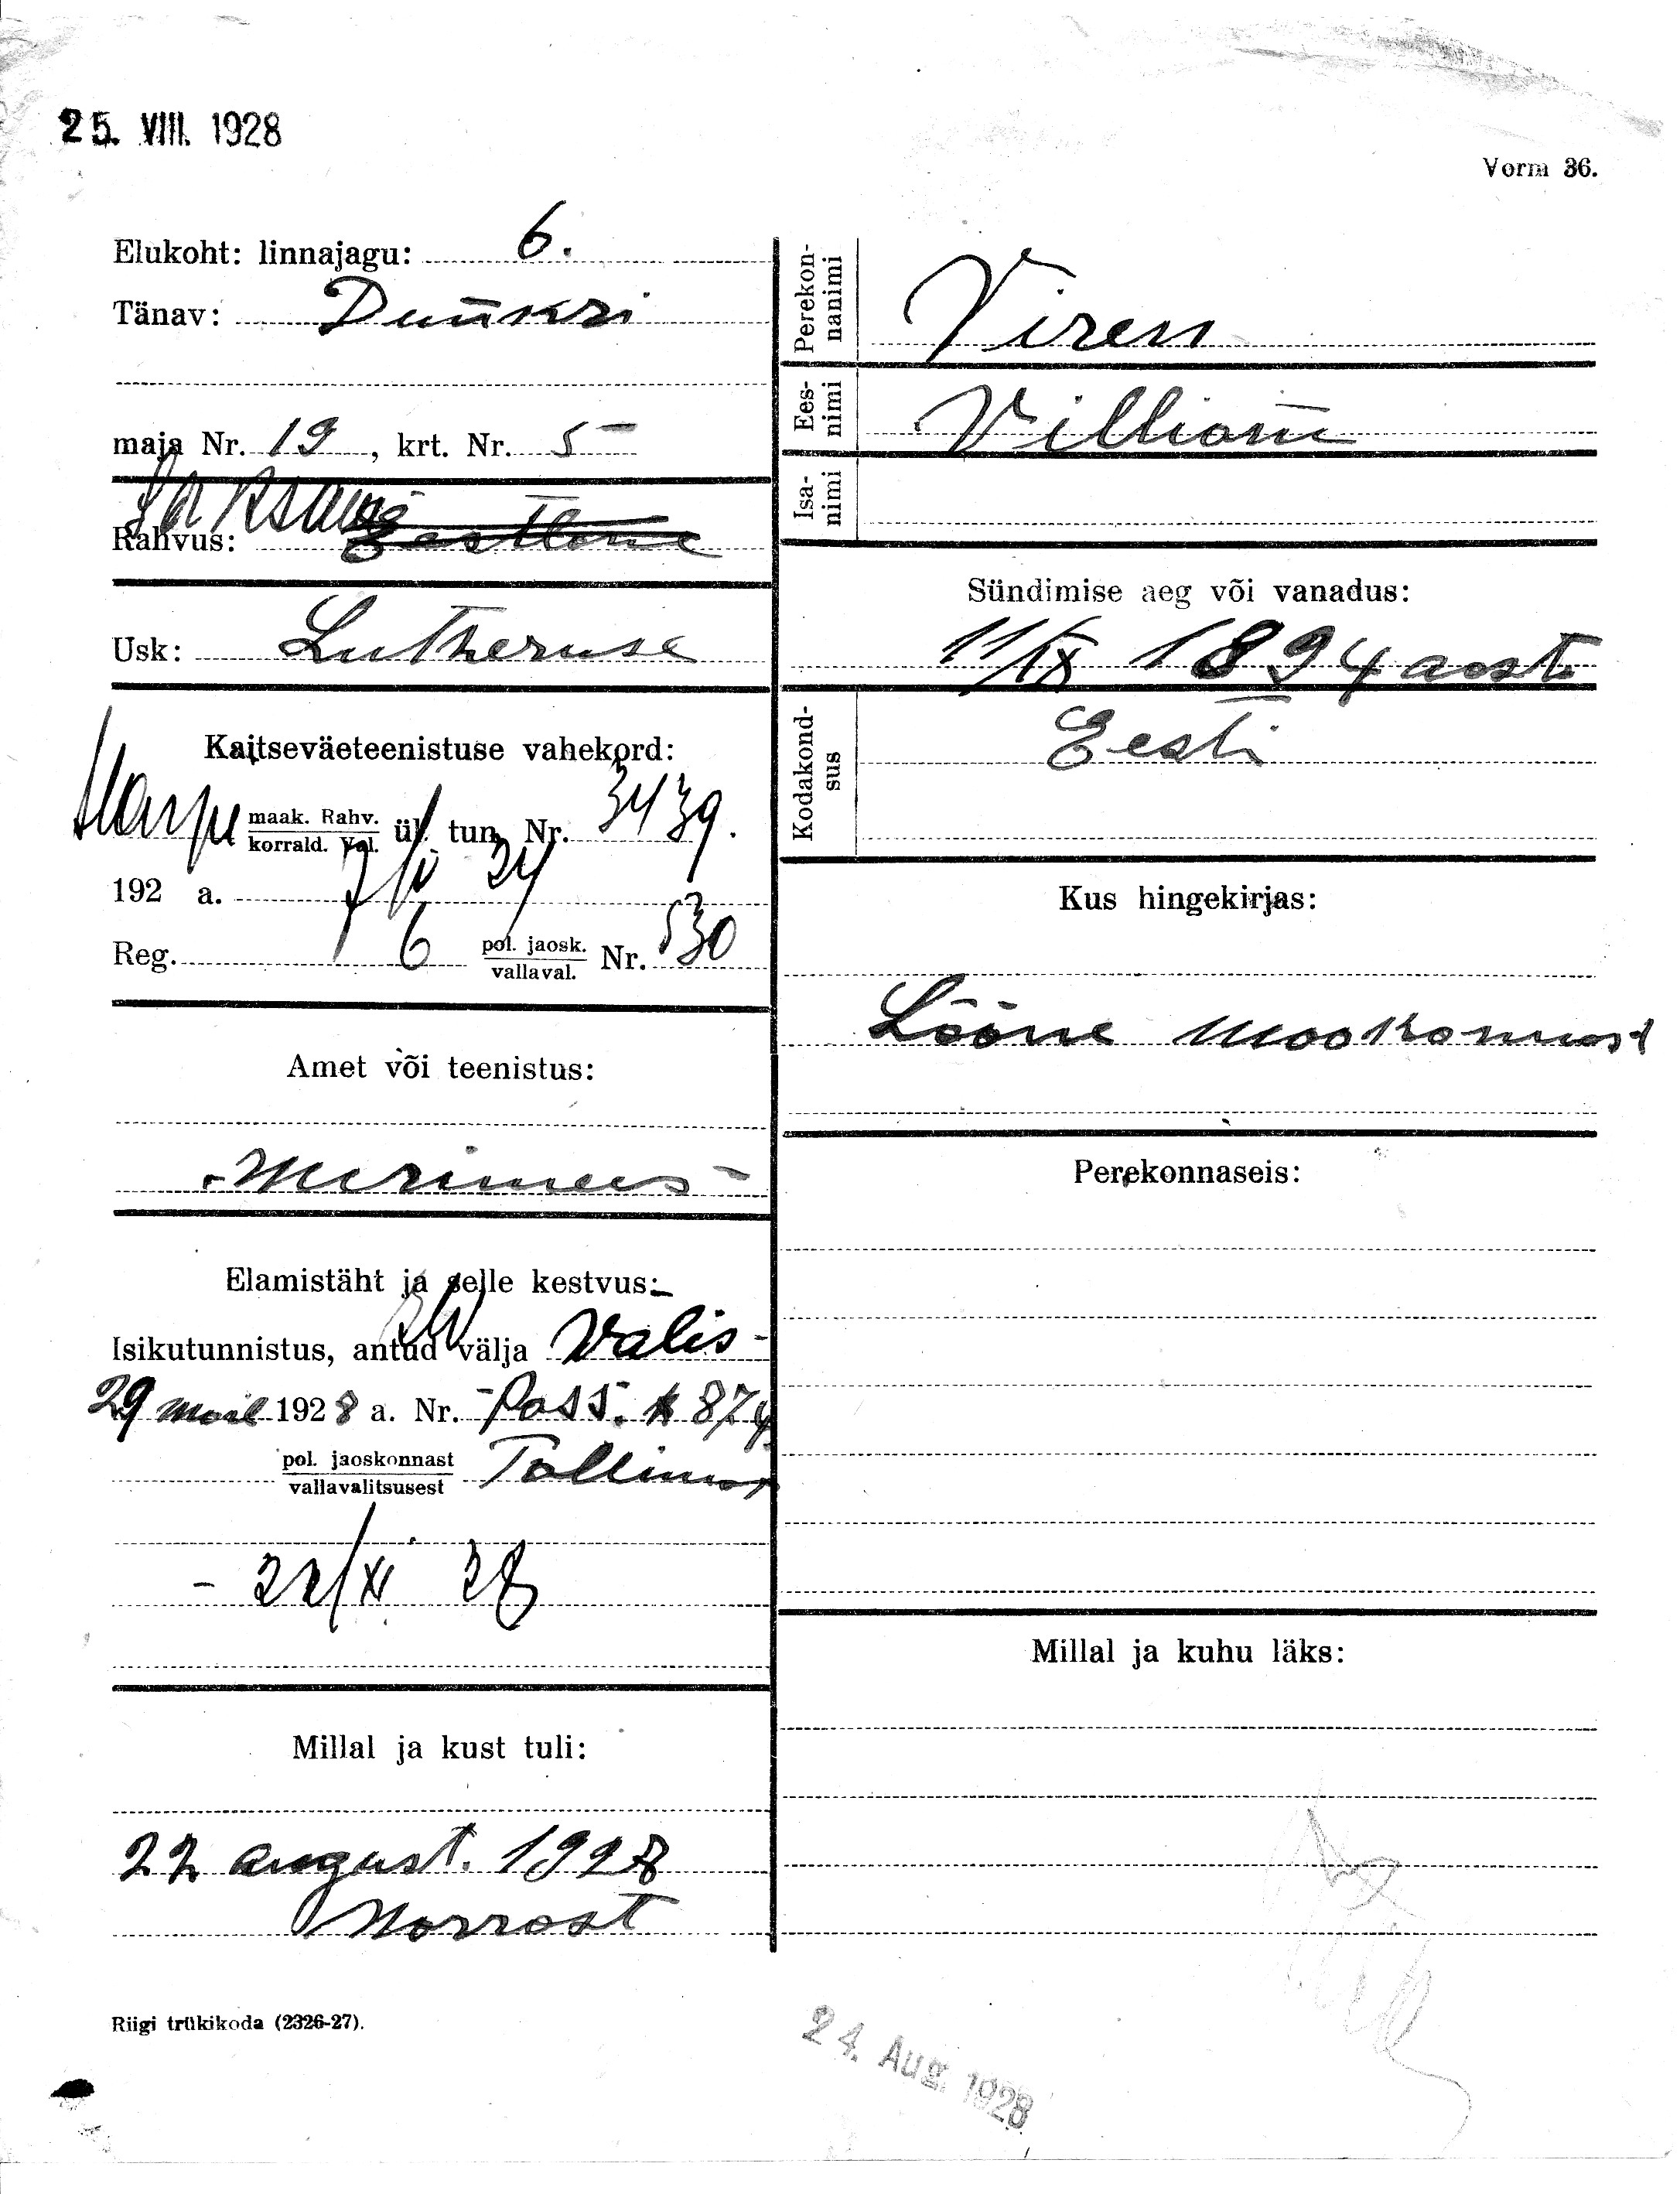 25. VIII. 1928
Vorm 36.
Elukoht: linnajagu: 6.
Tänav: Dunkri
maja Nr. 19, krt. Nr. 5
Saksa
Rahvus: Eestlane
Usk: Lutheruse
Kaitseväeteenistuse vahekord:
Harju maak. Rahv. korrald. Val. ül. tun. Nr. 3439.
192 a. 7/V 24
Reg. 6 pol. jaosk. vallaval. Nr. 530
Amet või teenistus:
Merimees
Elamistäht ja selle kestvus:
Isikutunnistus, antud välja Välis-
29 mail 1928 a. Nr. Pass. 874
pol. jaoskonnast vallavalitsusest Tallinnas
- 22/XI 28
Millal ja kust tuli:
22 august. 1928
Norrast
Riigi trükikoda (2326-27).
Perekon-
nanimi
Viren
Ees-
nimi
Villiam
Isa-
nimi
Sündimise aeg või vanadus:
11/IX 1894 aast.
Kodakond-
sus
Eesti
Kus hingekirjas:
Lääne maakonnast
Perekonnaseis:
Millal ja kuhu läks:
24. Aug 1928